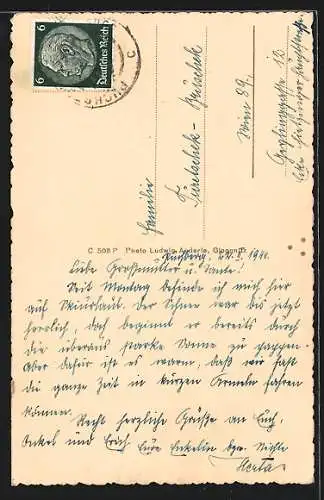 6
6
Deutsches Reich
PUCHBERG
c
Familie
Wien 89.
C 508 P Photo Ludwig Anderle, Gloggnitz
Puchberg, 1941.
Liebe Großmutter u. Tante!
Seit Montag befinde ich mich hier
auf Skiurlaub. Der Schnee war bis jetzt
herrlich, doch beginnt er bereits durch
die überaus starke Sonne zu pappen.
Aber dafür ist es so warm, daß wir fast
die ganze Zeit in kurzen Ärmeln fahren
können.
Recht herzliche Grüße an Euch,
Onkel und Erich Eure Enkelin bzw. Nichte
Herta